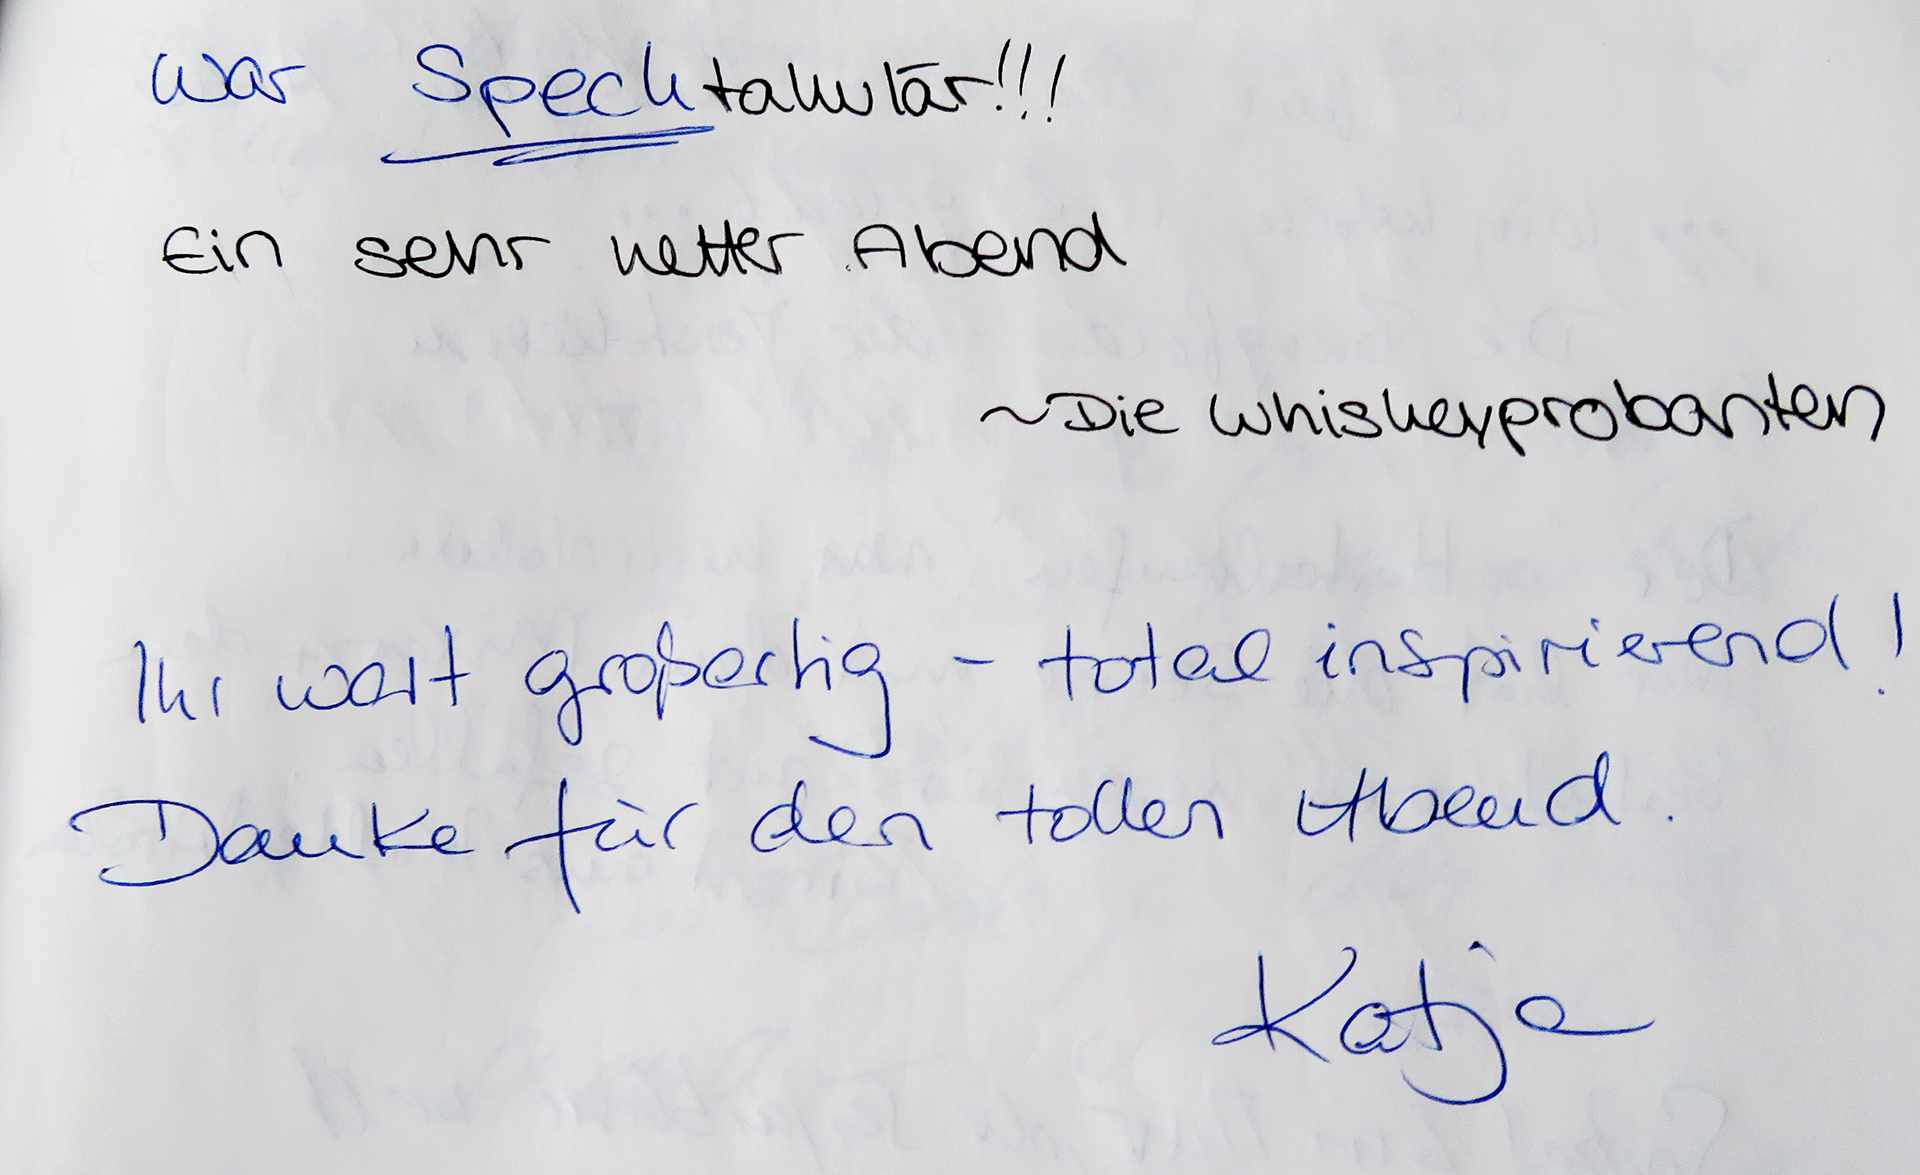 War Specktakulär!!!
Ein sehr netter Abend
~Die Whiskeyprobanten
Ihr wart großartig - total inspirierend!
Danke für den tollen Abend.
Katja